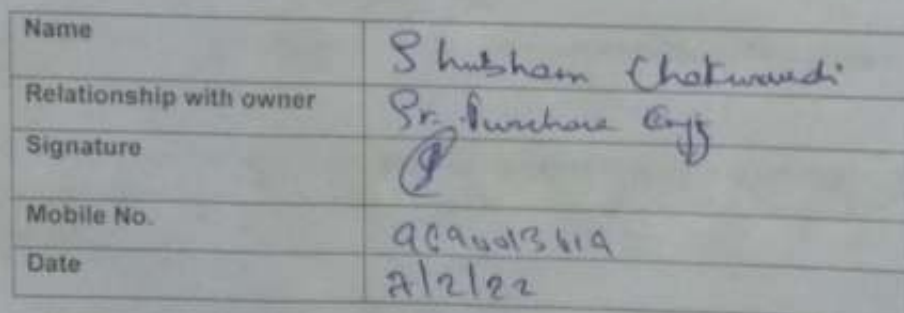 Name Shubham Chaturvedi
Relationship with owner Sr. Purchase Engg
Signature
Mobile No.
Date 7/2/22